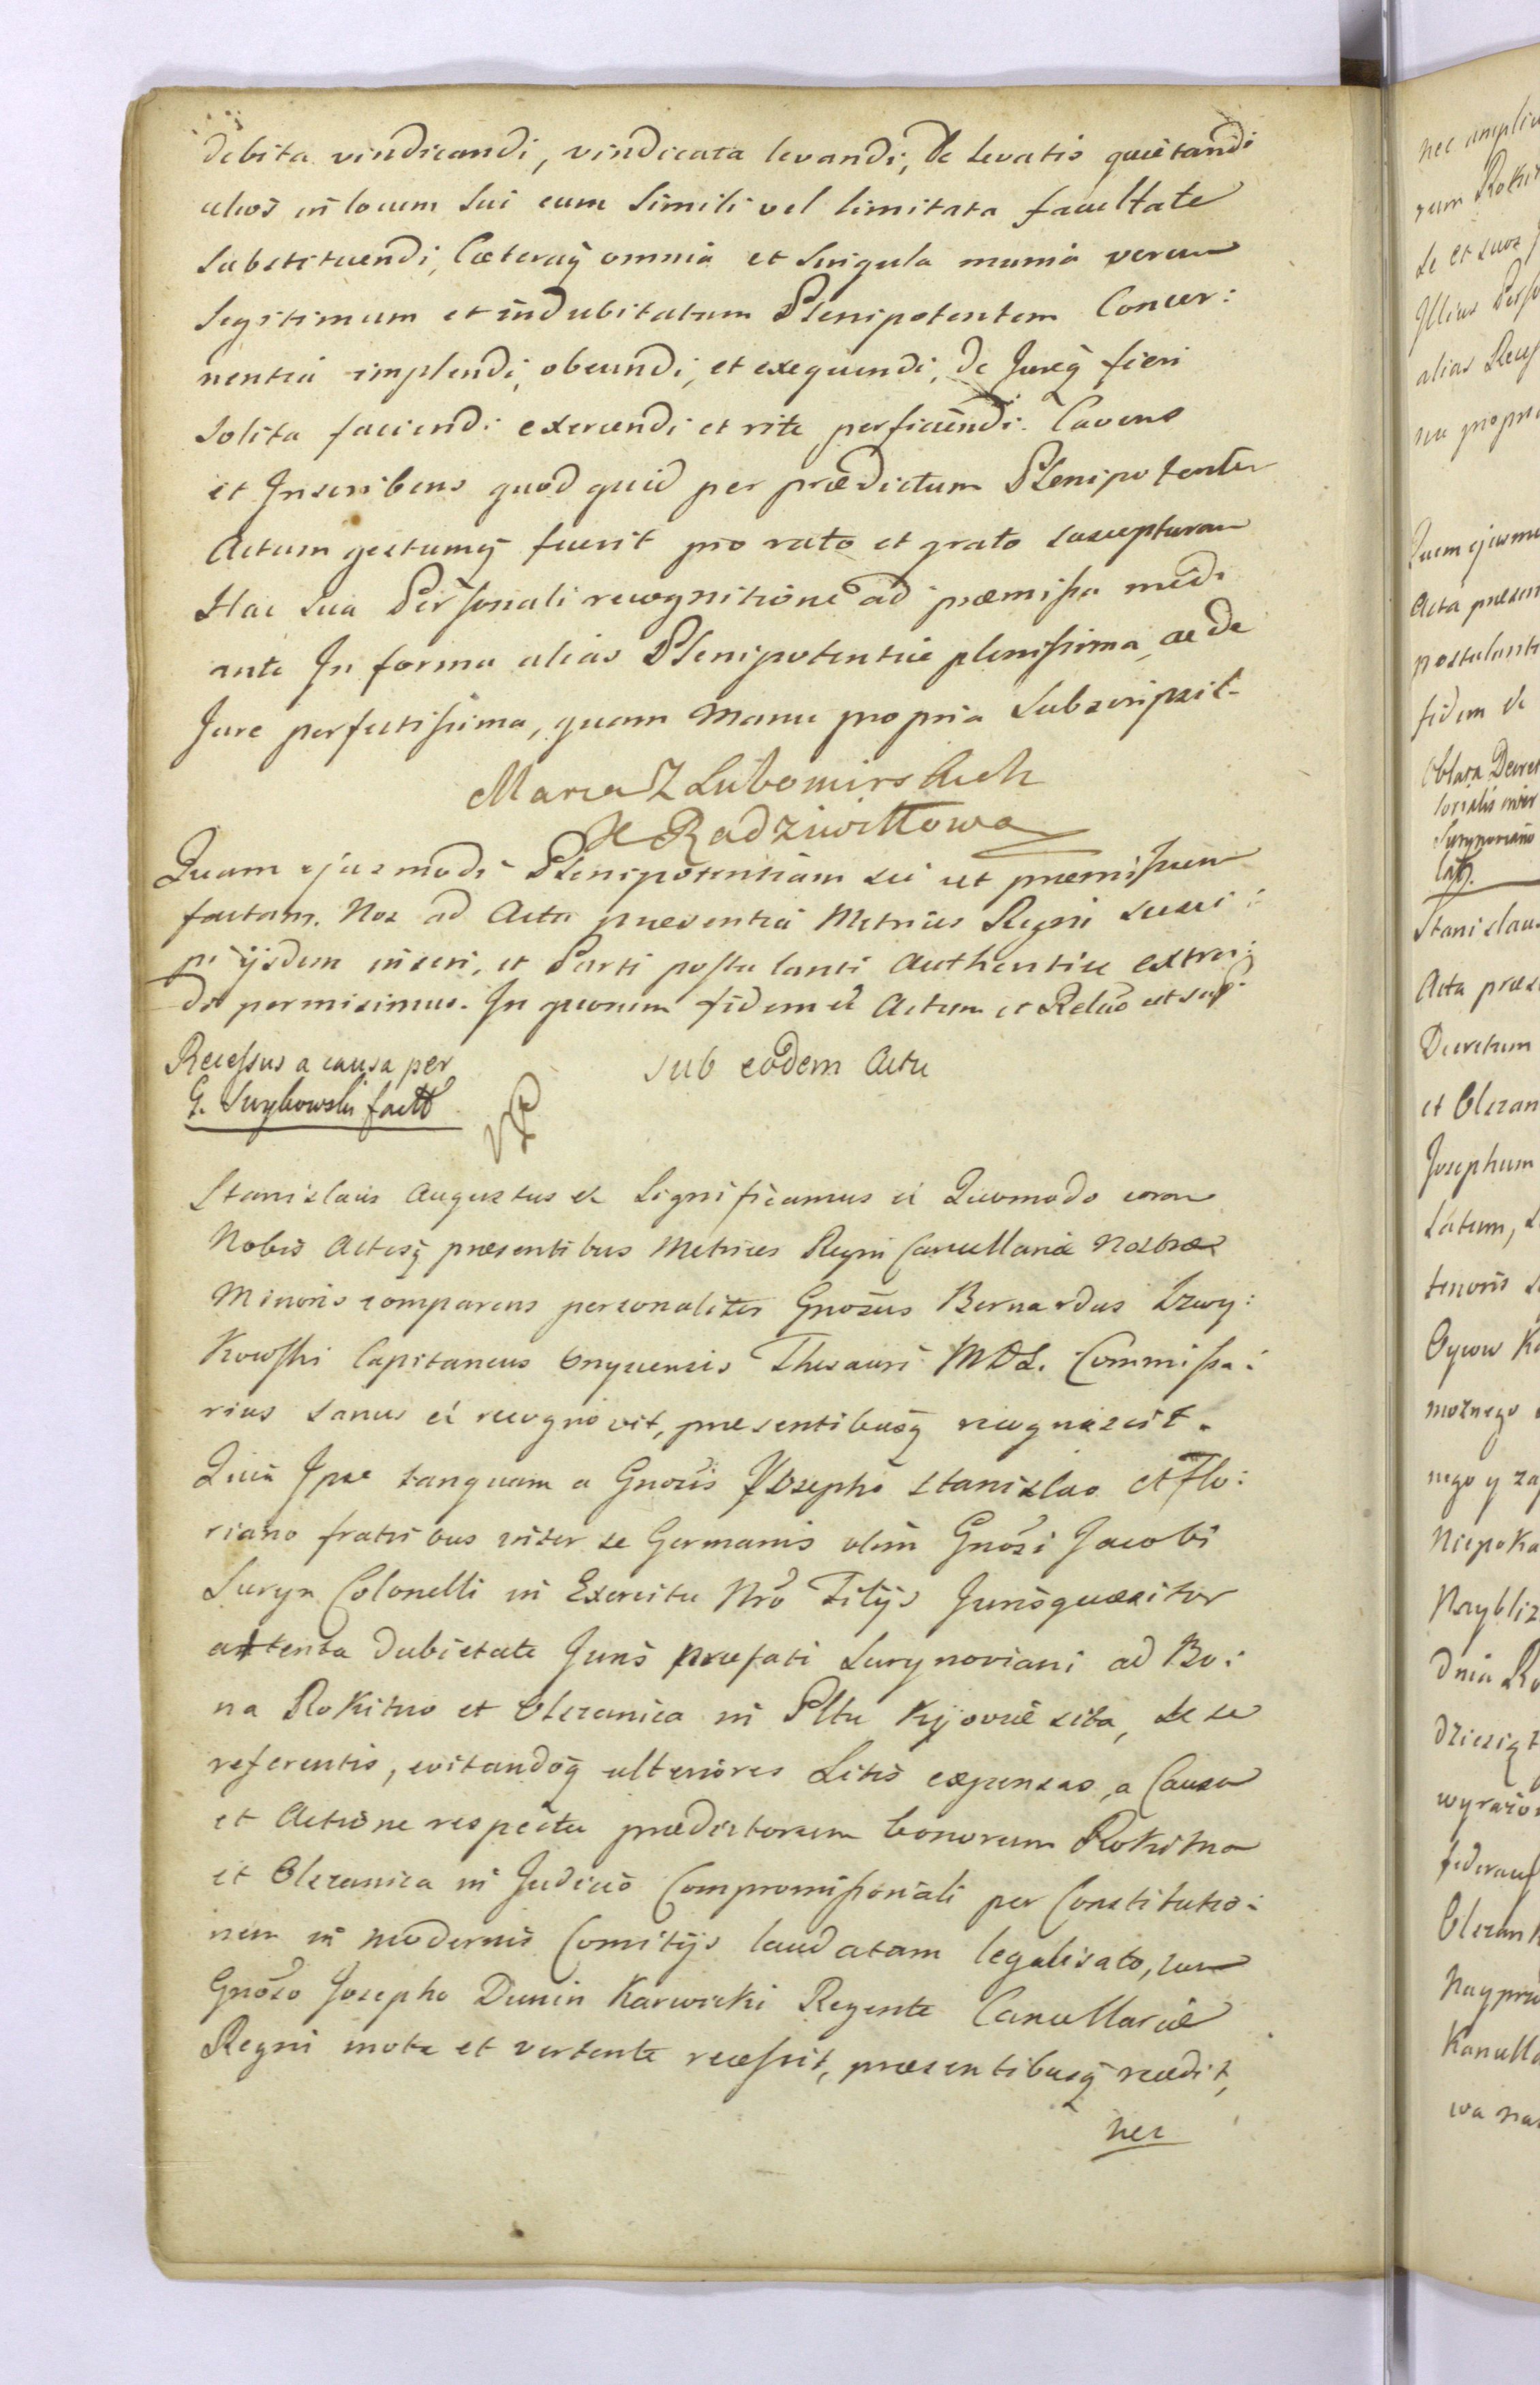 debita vindicandi, vindicata levandi, de levatis quietandi
alios in locum sui cum simili vel limitata facultate
substituendi, Cæteraq̃ omnia et singula munia verum
legitimum et indubitatum Plenipotentem Concer:
nentia implendi, obeundi, et exequendi, de Jureq̃ fieri
solita faciendi exercendi et rite perficiendi. Cavens
et Inscribens quod quid per prædictum Plenipotentem
Actum gestumq̃ fuerit pro rato et grato suscepturam
Hac sua Personali recognitione ad præmissa medi
ante In forma alias Plenipotentiæ plenissima, ac de
Jure perfectissima, quam Manu propria Subscripsit-
Maria Z Lubomirskich
X Radziwiłłowa
Quam ejusmodi Plenipotentiam sic ut præmissum
factam. Nos ad Acta præsentia Metrices Regni susci:
pi ijsdem inseri, et Parti postulanti Authentice extra:
di permisimus. In quorum fidem &c Actum et Relaõ ut sup
Recessus a causa per
G. Szyzkowski factt
sub eodem Actu
Stanislaus Augustus &c Significamus &c Quomodo coram
Nobis Actisq̃ præsentibus Metrices Regni Cancellariæ Nostræ
Minoris comparens personaliter Gnosus Bernardus Dzwy:
Kowski Capitaneus Thesauri MDL. Commissa:
rius sanus &c recognovit, præsentibusq̃ recognoscit.
Quia Ipse tanquam a Gnosis Josepho Stanislao et Flo:
riano fratribus inter se Germanis olim Gnosi Jacobi
Suryn Colonelli in Exercitu Nro Filijs Jurisquæsitor
attenta dubietate Juris præfati Surynoviani ad Bo:
na Rokitno et Olszanica in Pltu Kijoviæ sita, se se
referentis, evitandoq̃ ulteriores Litis expensas, a Causa
et Actione respectu prædictorum bonorum Rokitno
et Olszanica in Judicio Compromissoriali per Constitutio:
nem in modernis Comitijs laudatam legalisato, cum
Gnoso Josepho Dunin Karwicki Regente Cancellariæ
Regni mota et vertente recessit, præsentibusq̃ recedit,
nec
nec
se et suos
alias
Acta præsen
fidem &c
Oblata Decret
Stanislau
Acta præs
Decretum
et Olszan
Josephum
tenoris
nego y za
Niepoka
wa na